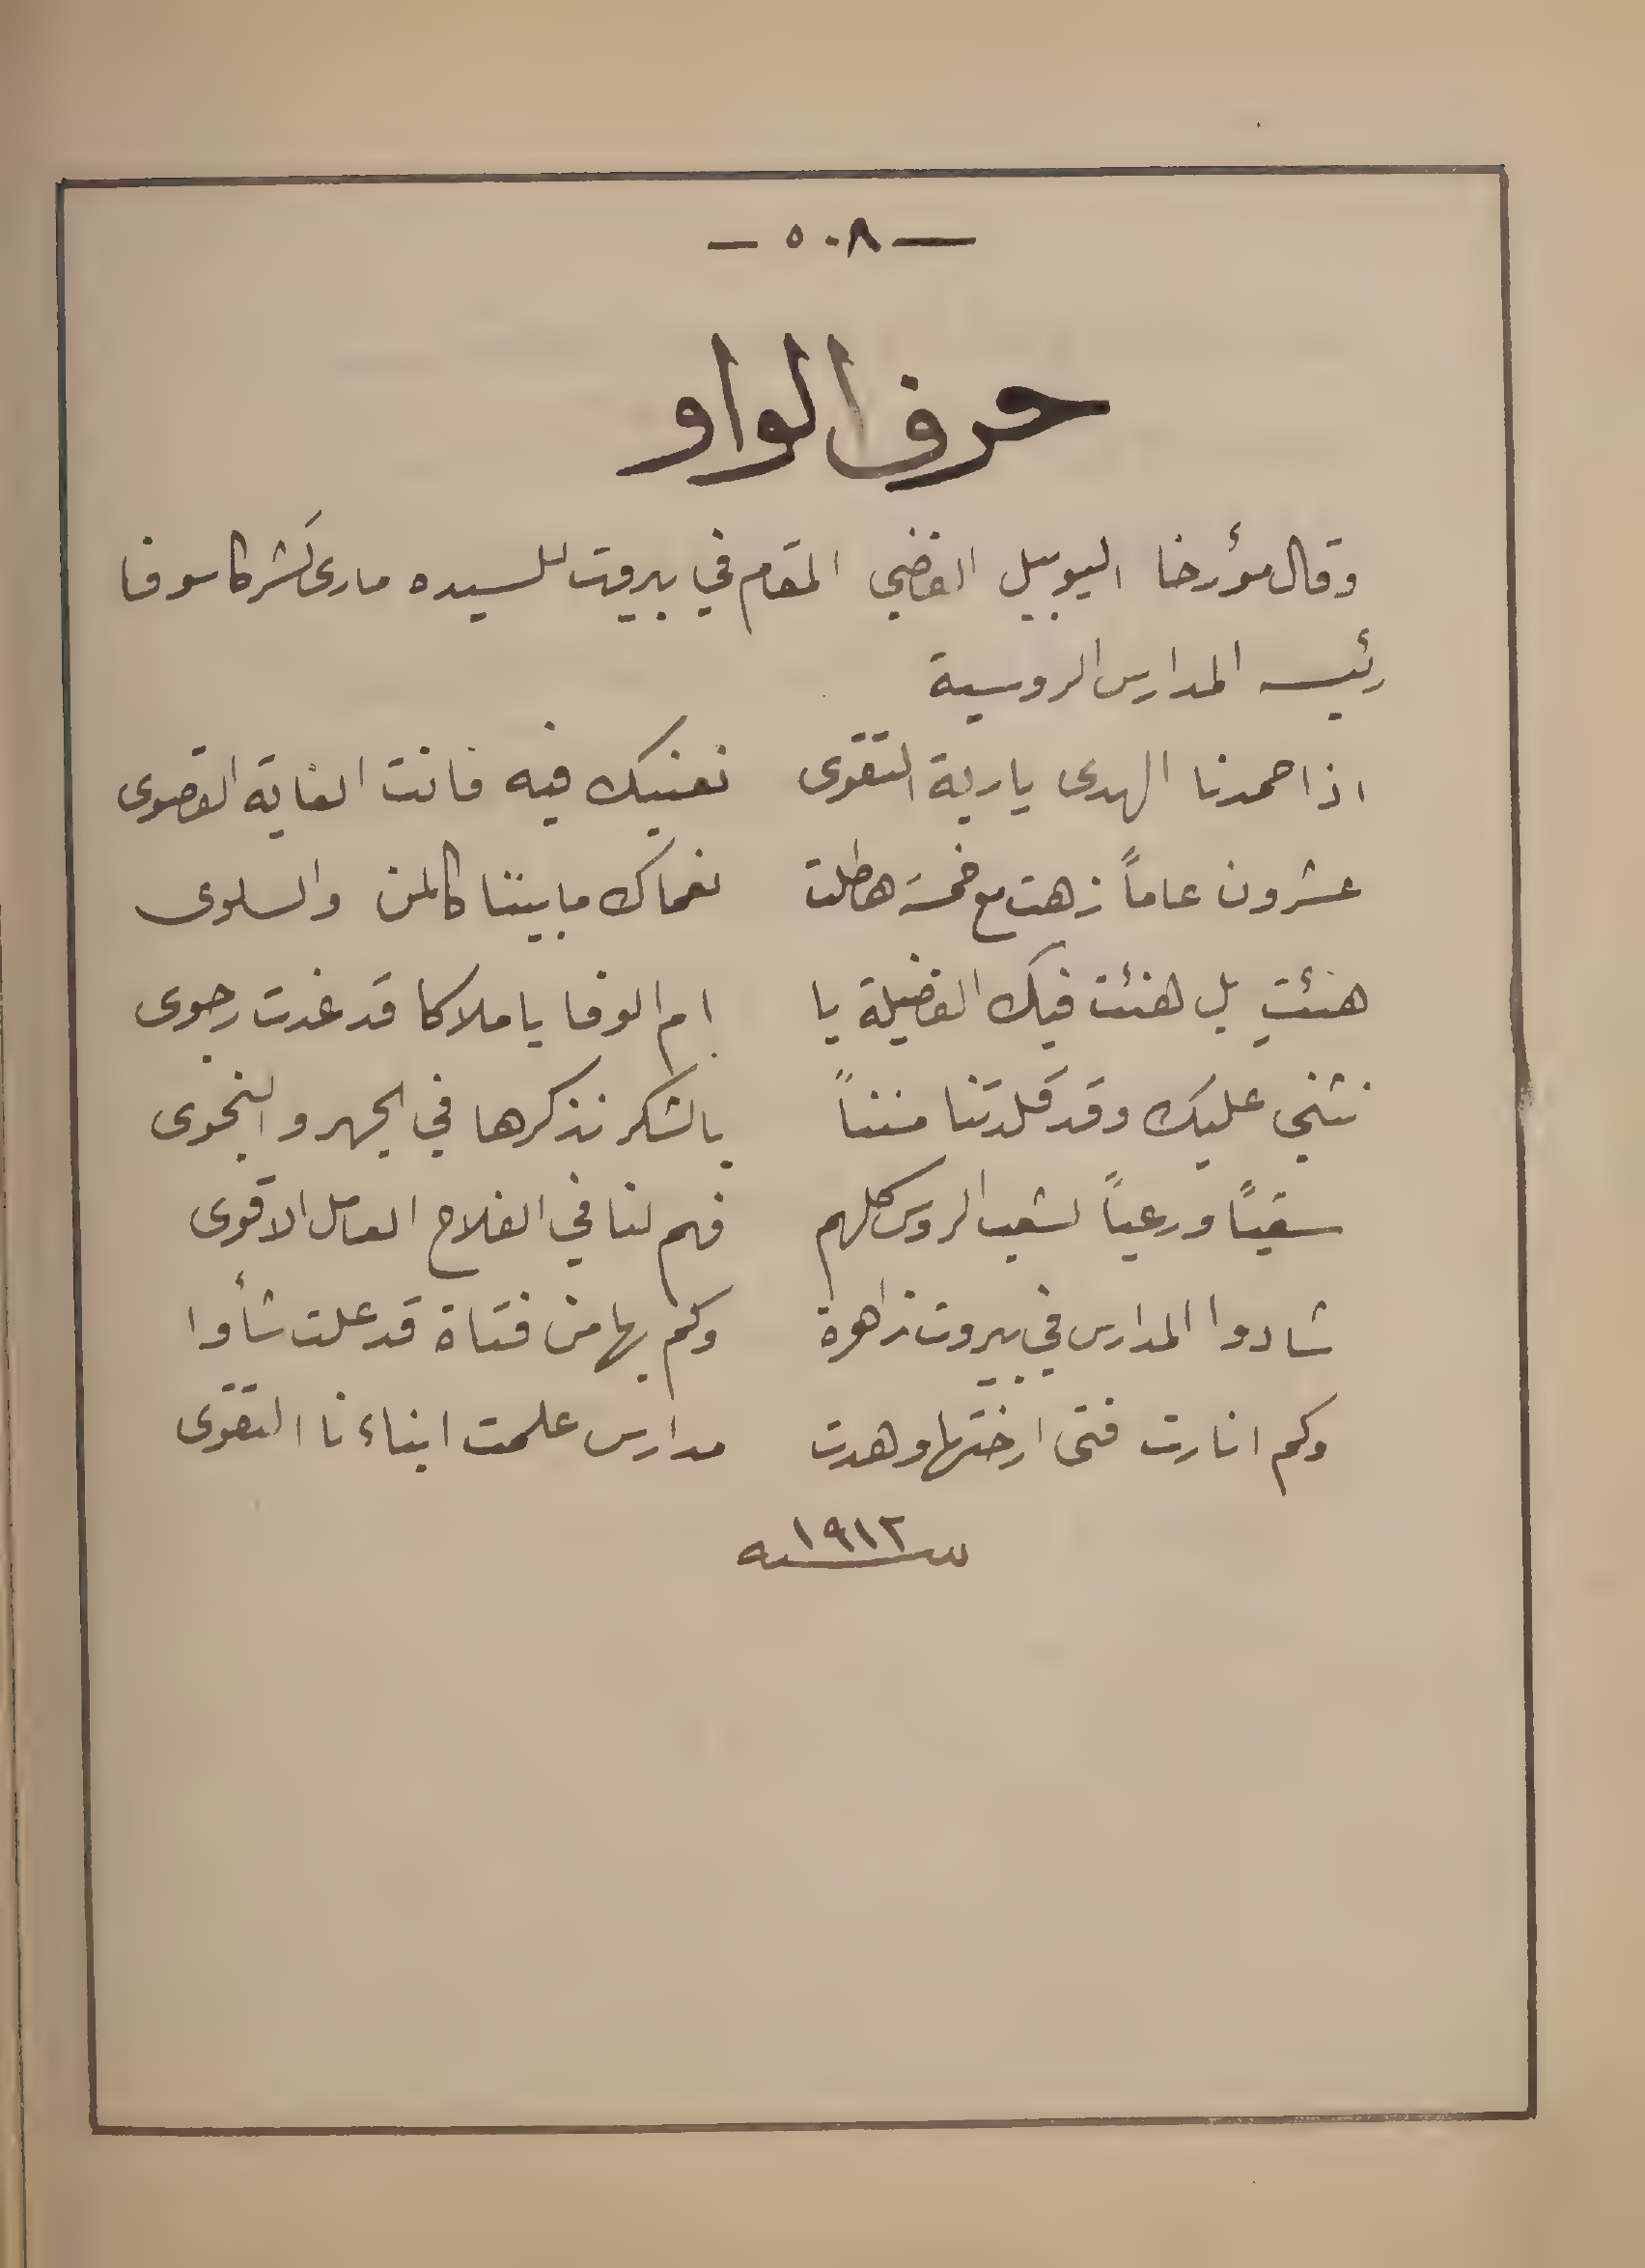 — ٥٠٨ —
حرف الواو
وقال مؤرخا اليوبيل الفضي المقام في بيروت للسيده مارى تشركاسوفا
رئيسه المدارس الروسية
اذا حمدنا الهدى يا ربة التقوى نعنيك فيه فانت الغاية القصوى
عشرون عاماً زهت مع خمسة هطلت نعماك ما بيننا كالمن والسلوى
هنئتِ بل هنئت فيك الفضيلة يا ام الوفا يا ملاكا قد غدت رجوى
نثني عليك وقد قلدتنا منناً بالشكر نذكرها في الجهر والنجوى
سقياً ورعياً لشعب الروس كلهم فهم لنا في الفلاح العامل الاقوى
شادوا المدارس في بيروت زاهرة وكم بها من فتاة قد علت شأوا
وكم انارت فتى ارختها وهدت مدارس علمت ابناءنا التقوى
سنه ١٩١٢